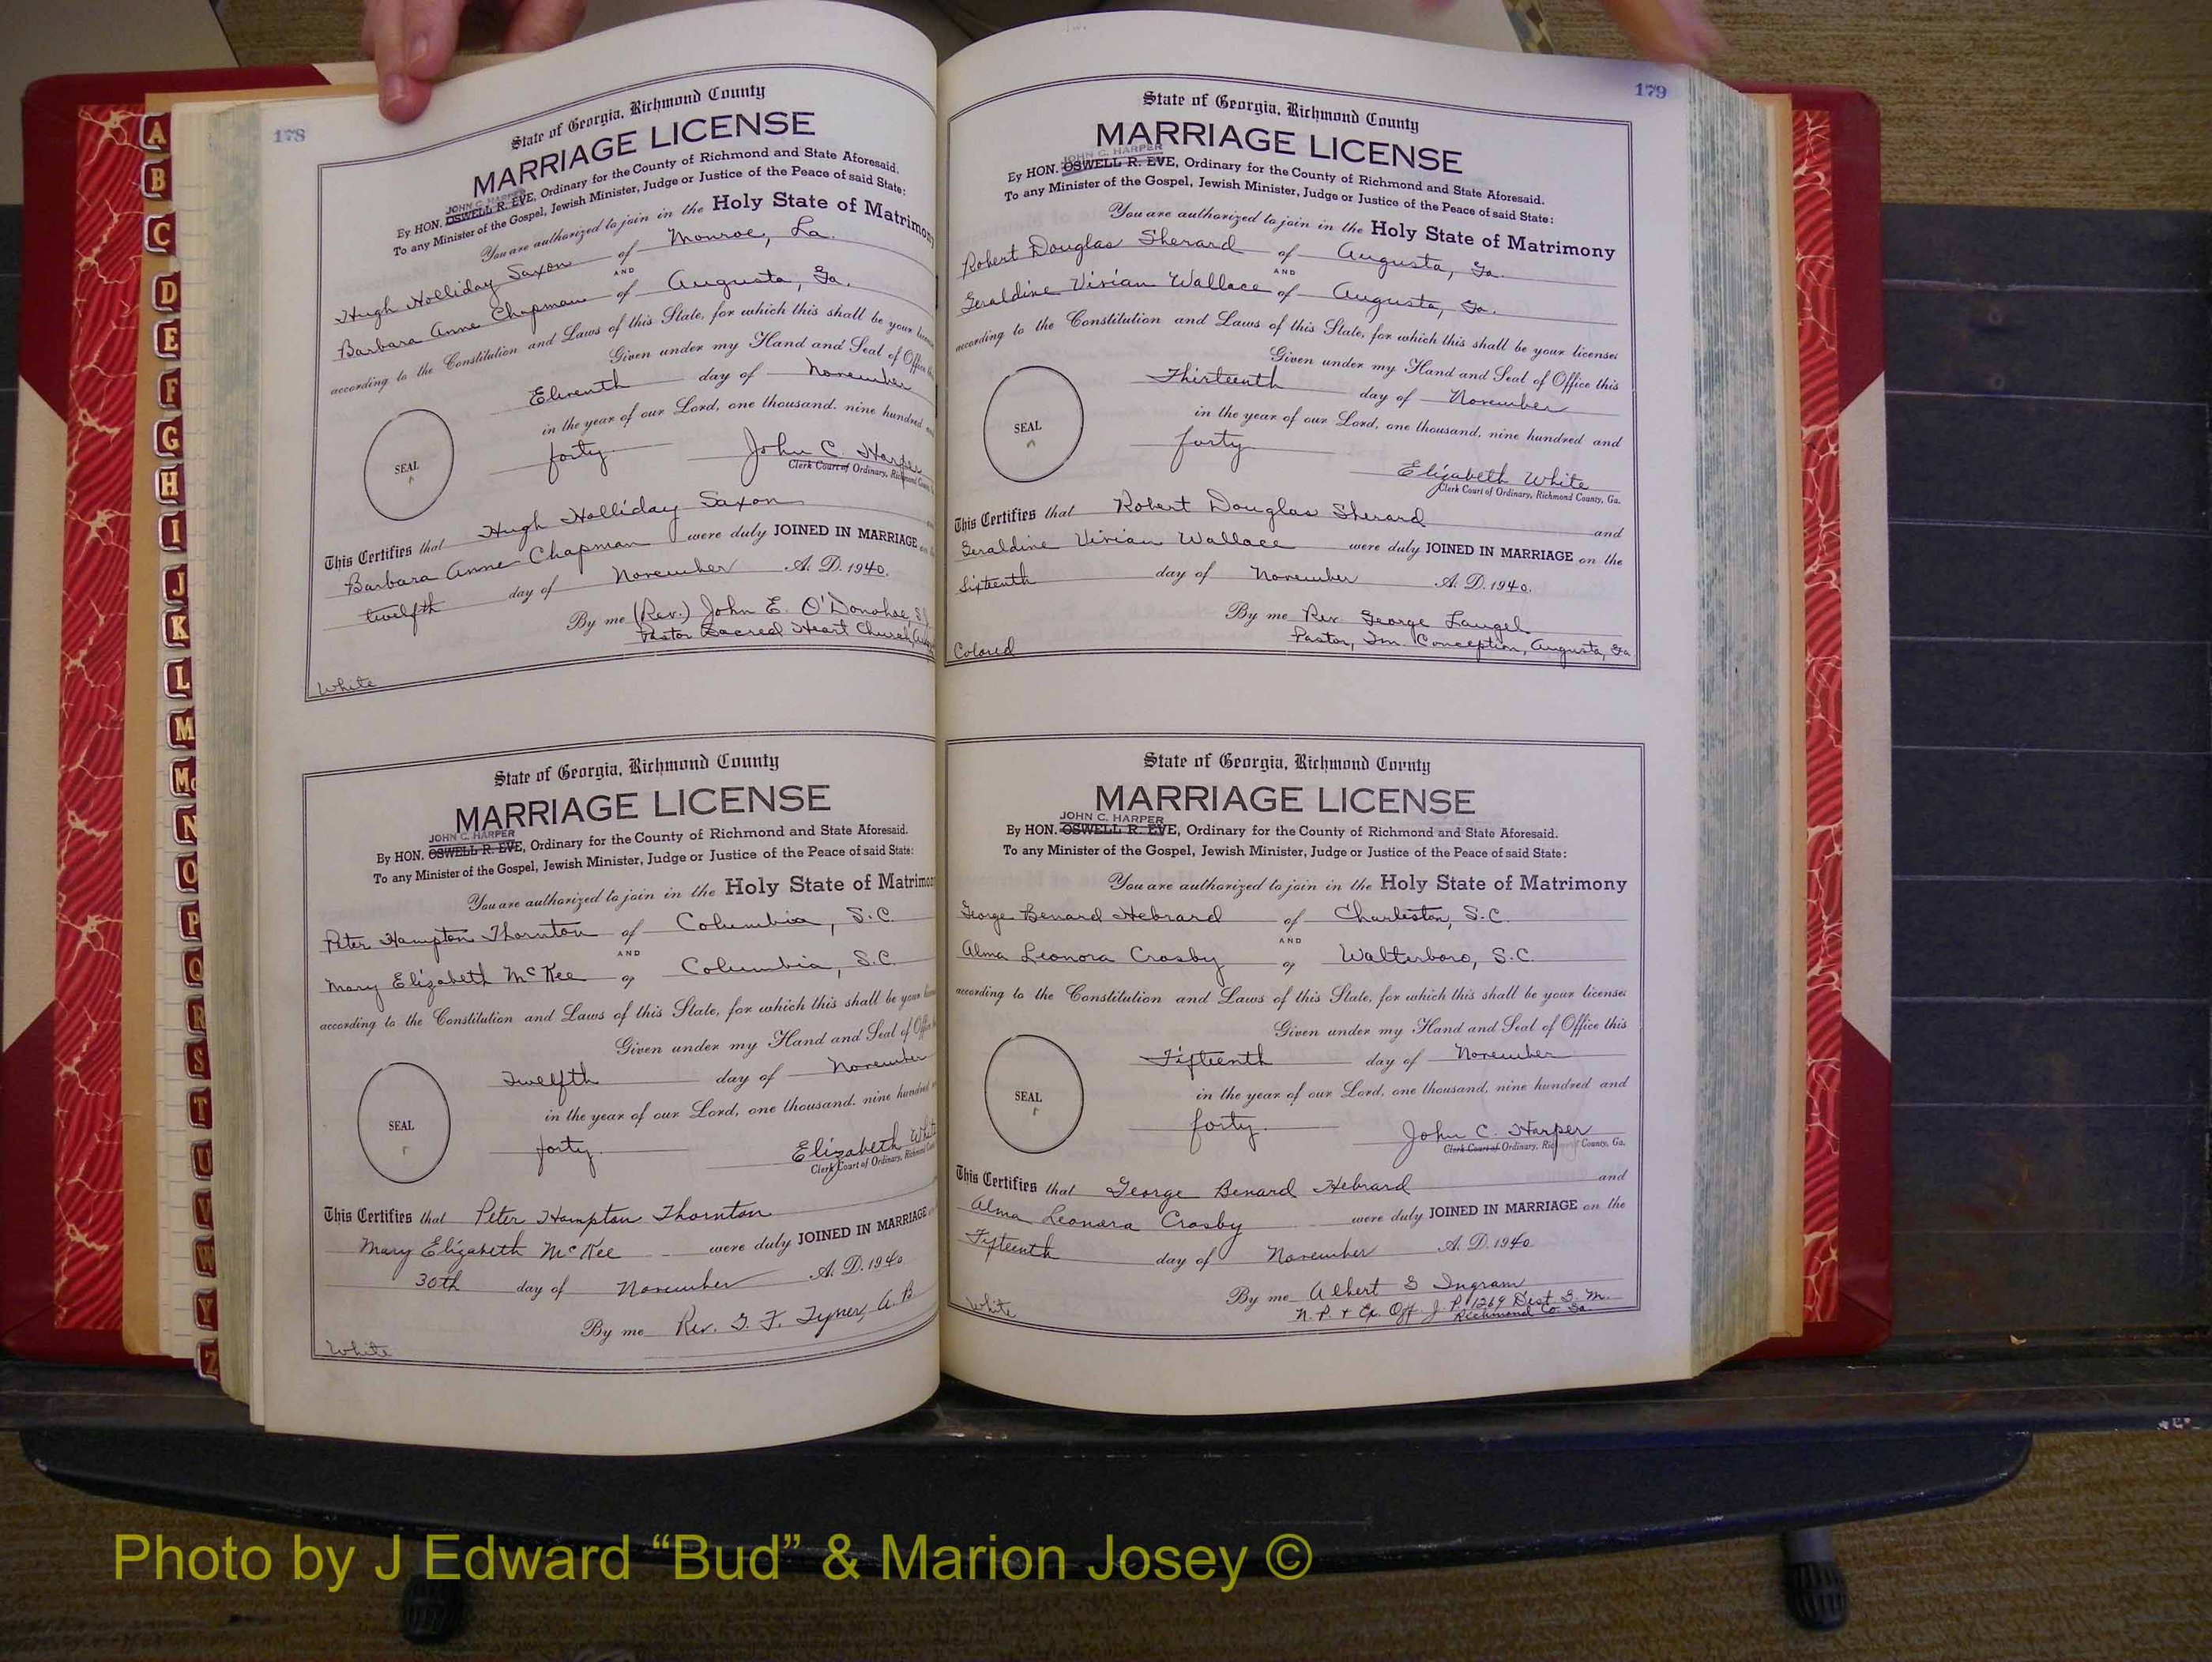 A
B
C
D
E
F
G
H
I
J
K
L
M
Mc
N
O
P
Q
R
S
T
U
V
W
Y
Z
178
State of Georgia, Richmond County
MARRIAGE LICENSE
JOHN C. HARPER
By HON. OSWELL R. EVE, Ordinary for the County of Richmond and State Aforesaid.
To any Minister of the Gospel, Jewish Minister, Judge or Justice of the Peace of said State:
You are authorized to join in the Holy State of Matrimony
Hugh Holliday Saxon of Monroe, La.
AND
Barbara Anne Chapman of Augusta, Ga.
according to the Constitution and Laws of this State, for which this shall be your
Given under my Hand and Seal of Office
Eleventh day of November
in the year of our Lord, one thousand, nine hundred
forty
SEAL
John C. Harper
Clerk Court of Ordinary, Richmond
This Certifies that Hugh Holliday Saxon
Barbara Anne Chapman were duly JOINED IN MARRIAGE
twelfth day of November A. D. 1940.
By me (Rev.) John E. O'Donohoe, S.J.
Pastor Sacred Heart Church,
White
State of Georgia, Richmond County
MARRIAGE LICENSE
JOHN C. HARPER
By HON. OSWELL R. EVE, Ordinary for the County of Richmond and State Aforesaid.
To any Minister of the Gospel, Jewish Minister, Judge or Justice of the Peace of said State:
You are authorized to join in the Holy State of Matrimony
Peter Hampton Thornton of Columbia, S.C.
AND
Mary Elizabeth McKee of Columbia, S.C.
according to the Constitution and Laws of this State, for which this shall be your
Given under my Hand and Seal of
Twelfth day of November
in the year of our Lord, one thousand, nine hundred
forty.
SEAL
Elizabeth White
Clerk Court of Ordinary, Richmond
This Certifies that Peter Hampton Thornton
Mary Elizabeth McKee were duly JOINED IN MARRIAGE
30th day of November A. D. 1940
By me Rev. G. F. Tyner, A.B.
White
179
State of Georgia, Richmond County
MARRIAGE LICENSE
JOHN C. HARPER
By HON. OSWELL R. EVE, Ordinary for the County of Richmond and State Aforesaid.
To any Minister of the Gospel, Jewish Minister, Judge or Justice of the Peace of said State:
You are authorized to join in the Holy State of Matrimony
Robert Douglas Sherard of Augusta, Ga.
AND
Geraldine Vivian Wallace of Augusta, Ga.
according to the Constitution and Laws of this State, for which this shall be your license:
Given under my Hand and Seal of Office this
Thirteenth day of November
in the year of our Lord, one thousand, nine hundred and
forty
SEAL
Elizabeth White
Clerk Court of Ordinary, Richmond County, Ga.
This Certifies that Robert Douglas Sherard and
Geraldine Vivian Wallace were duly JOINED IN MARRIAGE on the
Sixteenth day of November A. D. 1940.
By me Rev George Laugel
Pastor, Im. Conception, Augusta, Ga
Colored
State of Georgia, Richmond County
MARRIAGE LICENSE
JOHN C. HARPER
By HON. OSWELL R. EVE, Ordinary for the County of Richmond and State Aforesaid.
To any Minister of the Gospel, Jewish Minister, Judge or Justice of the Peace of said State:
You are authorized to join in the Holy State of Matrimony
George Benard Hebrard of Charleston, S.C.
AND
Alma Leonora Crosby of Walterboro, S.C.
according to the Constitution and Laws of this State, for which this shall be your license:
Given under my Hand and Seal of Office this
Fifteenth day of November
in the year of our Lord, one thousand, nine hundred and
forty.
SEAL
John C. Harper
Clerk Court of Ordinary, Richmond County, Ga.
This Certifies that George Benard Hebrard and
Alma Leonora Crosby were duly JOINED IN MARRIAGE on the
Fifteenth day of November A. D. 1940
By me Albert G Ingram
N. P. + Ex. Off. J. P. 1269 Dist G. M.
Richmond Co. Ga
White
Photo by J Edward “Bud” & Marion Josey ©